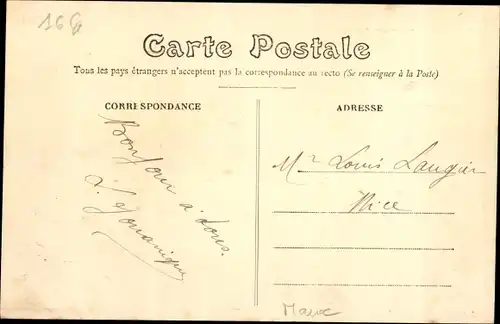 16
Carte Postale
Tous les pays étrangers n'acceptent pas la correspondance au recto (Se renseigner à la Poste)
CORRESPONDANCE
Bonjour à tous.
ADRESSE
Mr Louis Laugier
Nice
Maroc